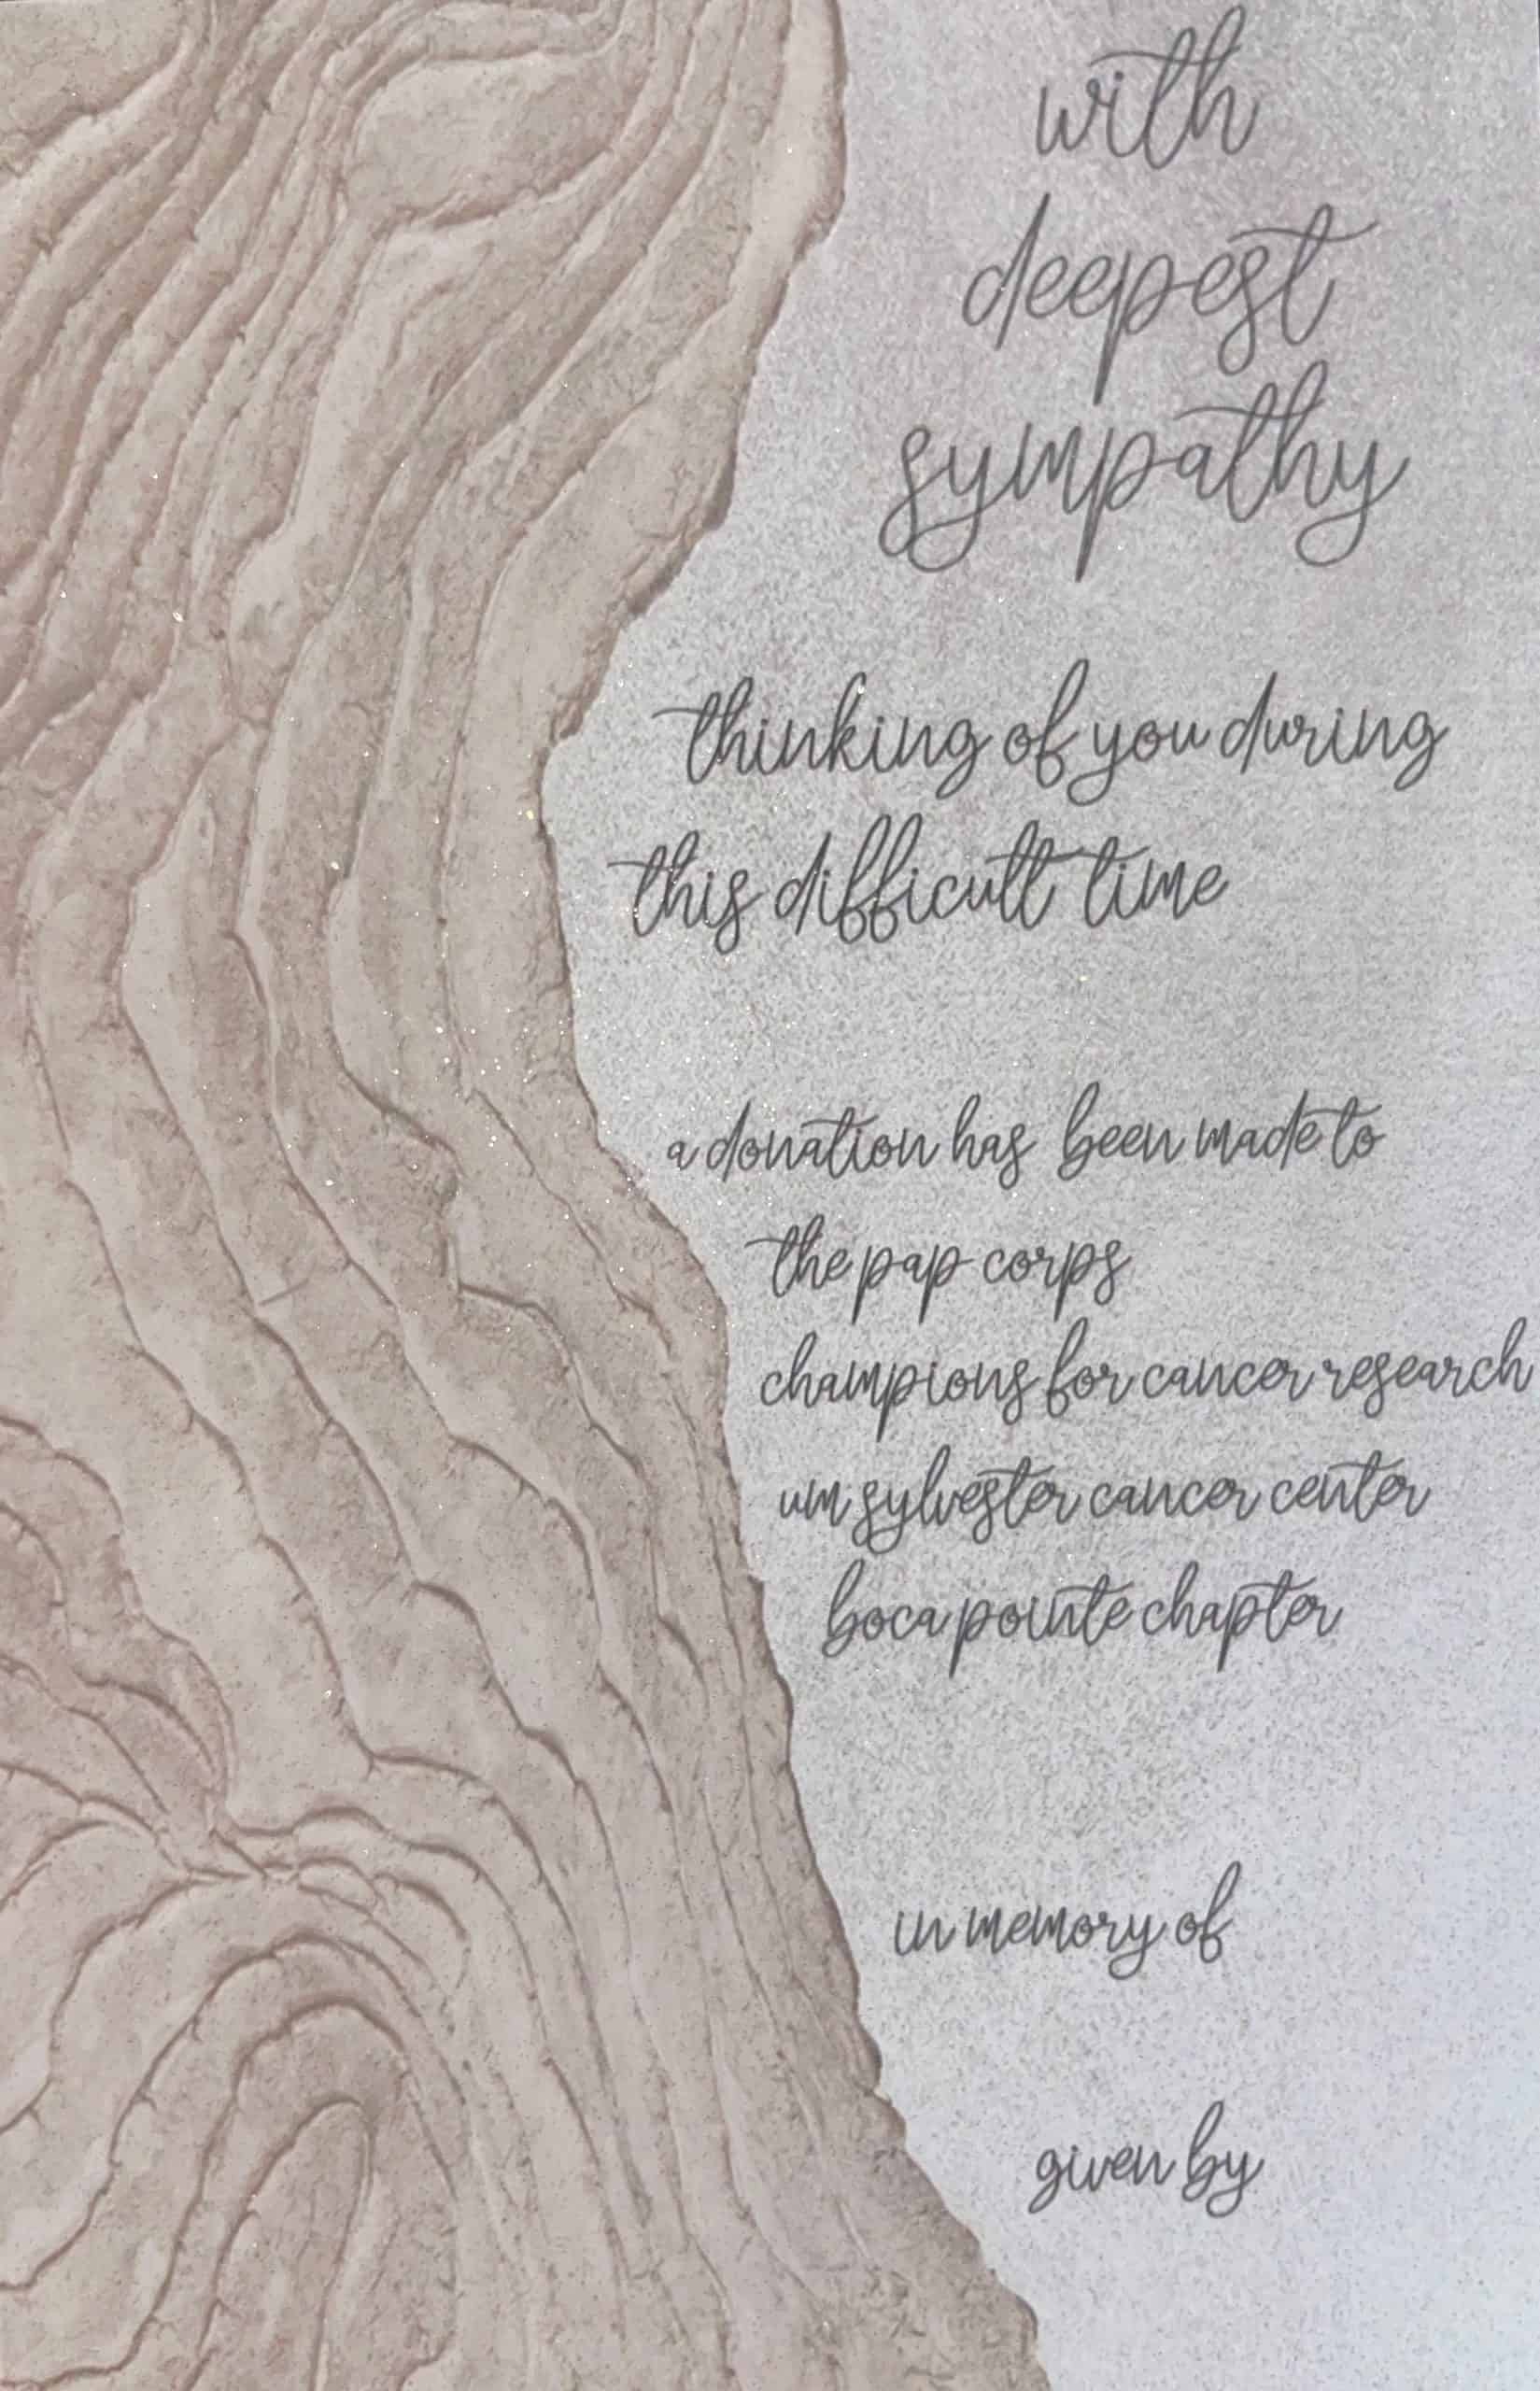 with
deepest
sympathy
thinking of you during
this difficult time
a donation has been made to
the pap corps
champions for cancer research
um sylvester cancer center
boca pointe chapter
in memory of
given by